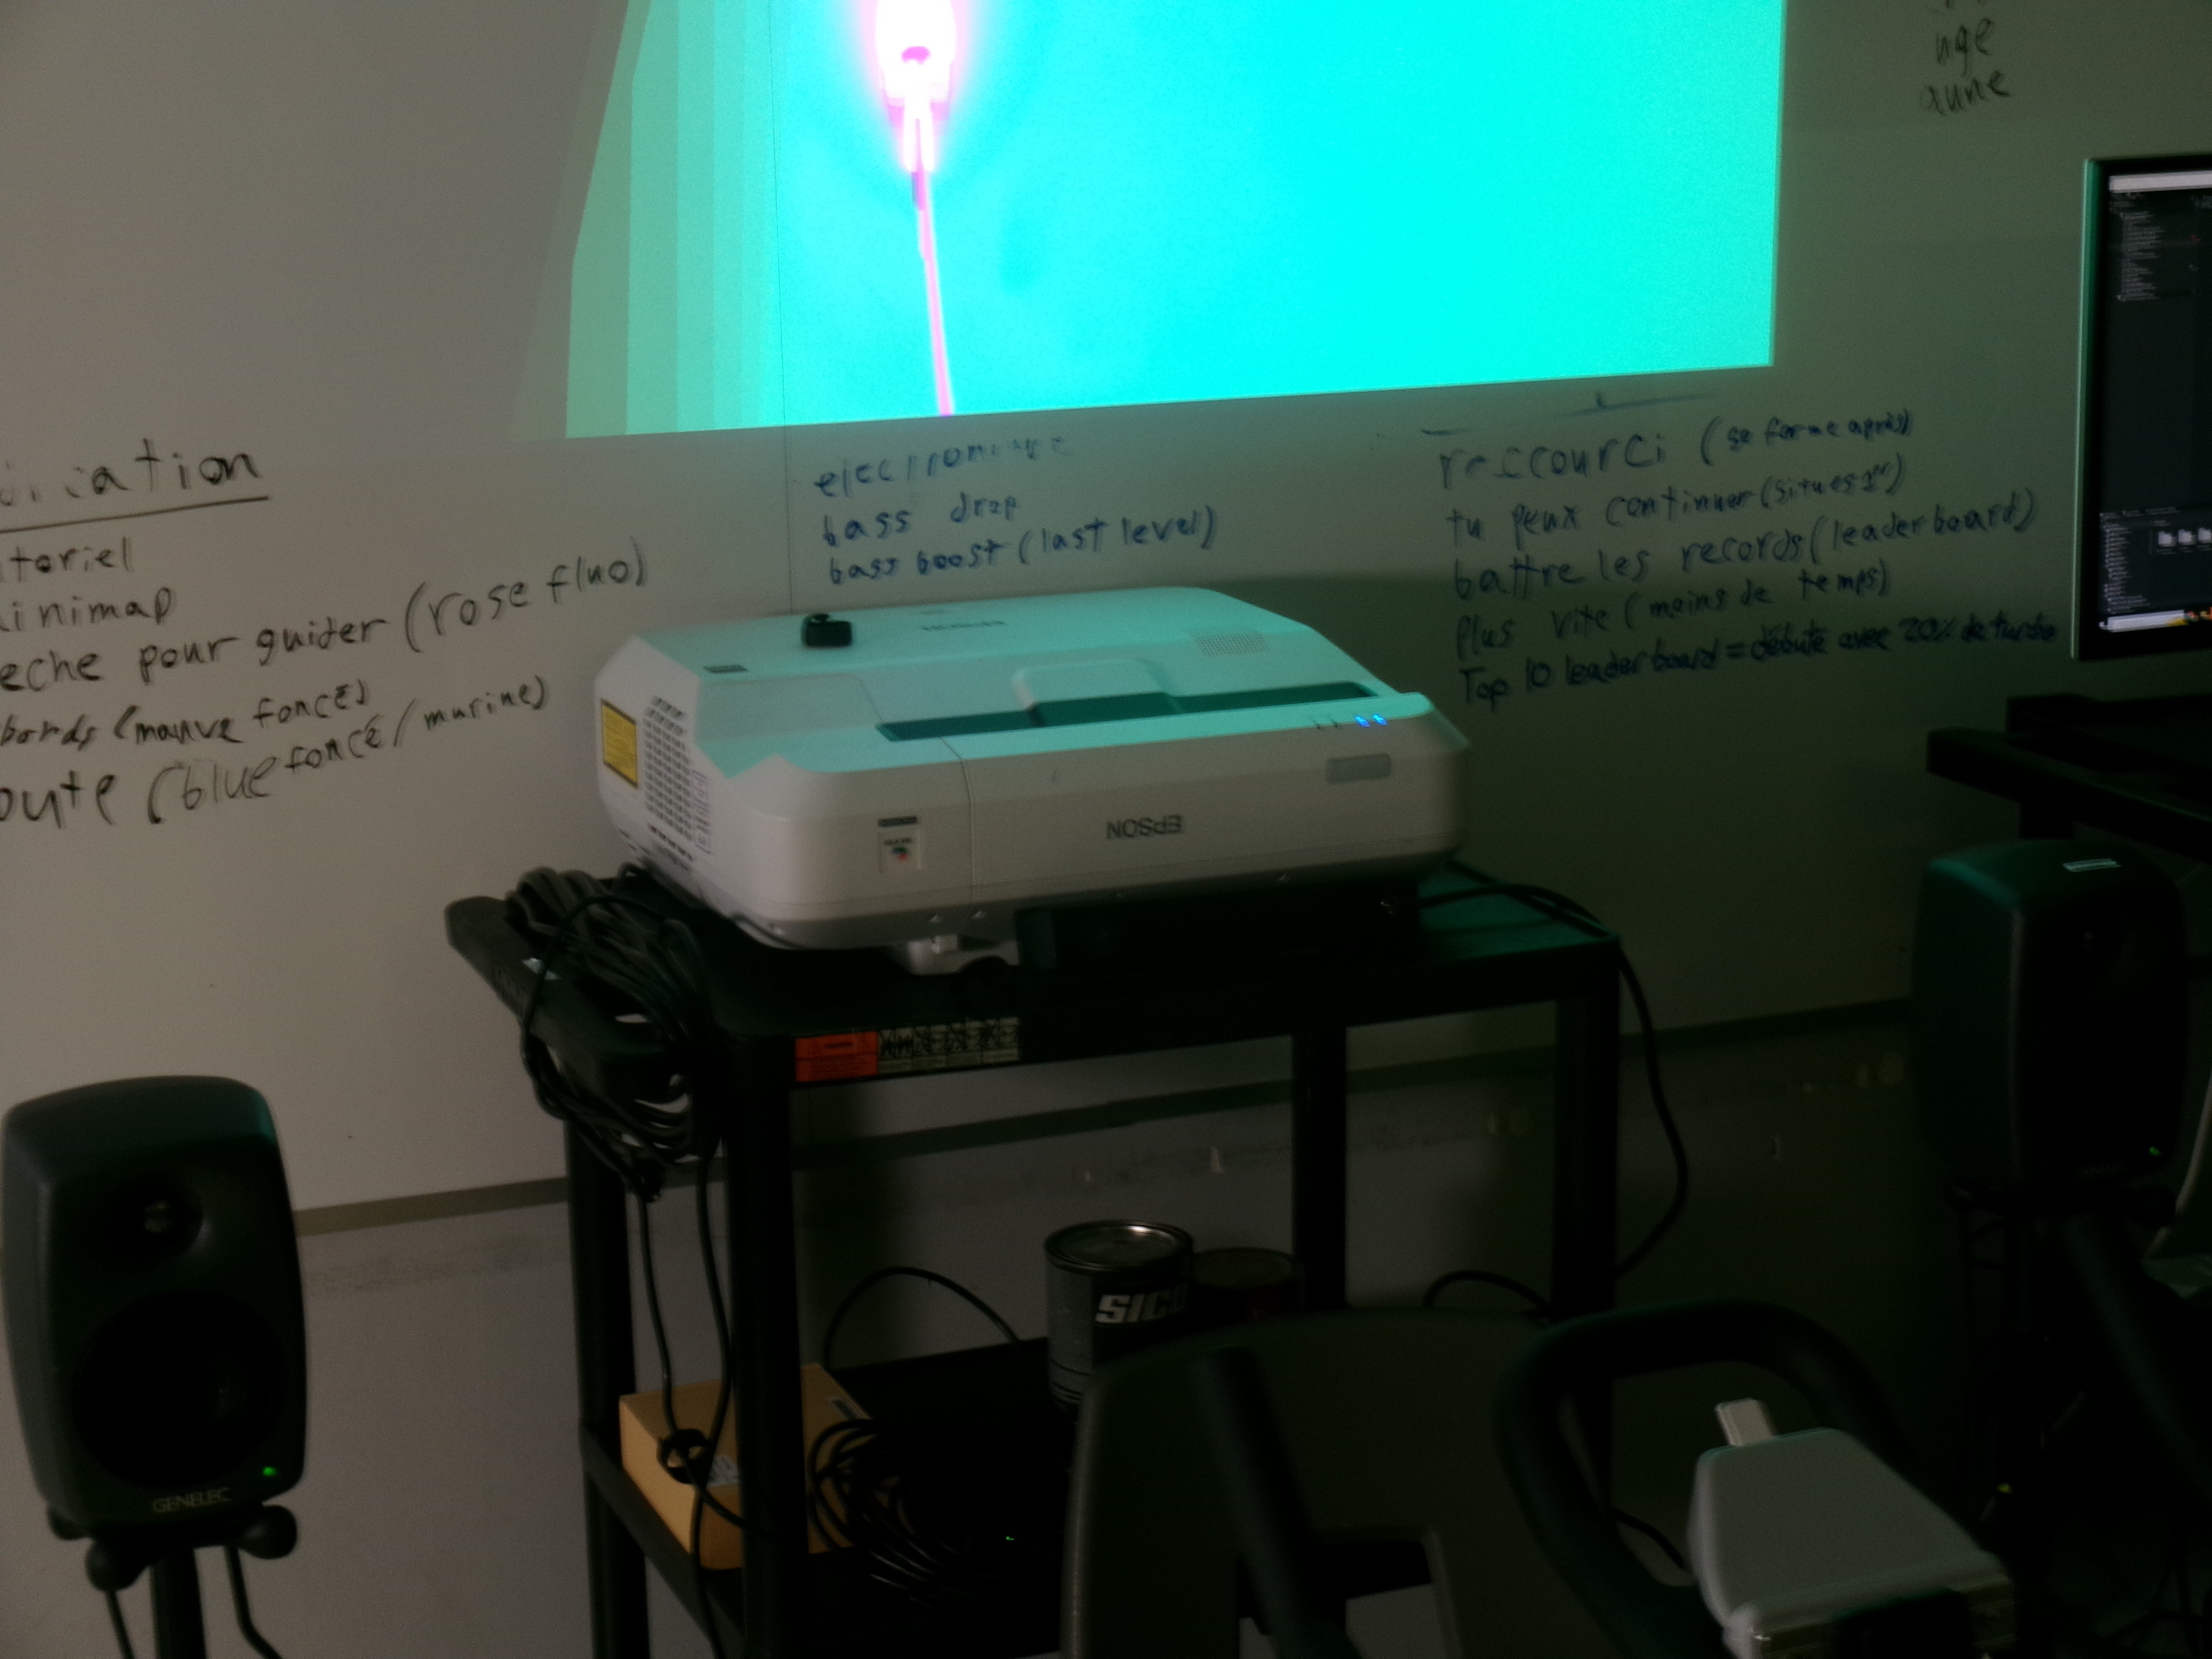 nge
aune
toriel
inimap
eche pour guider (rose fluo)
bords (mauve foncé)
oute (blue foncé/marine)
bass drop
bass boost (last level)
raccourci (se ferme après)
tu peux continuer (si tu es 1er)
battre les records (leaderboard)
plus vite (moins de temps)
Top 10 leaderboard = débute avec 20% de turbo
EPSON
EPSON
SICO
GENELEC